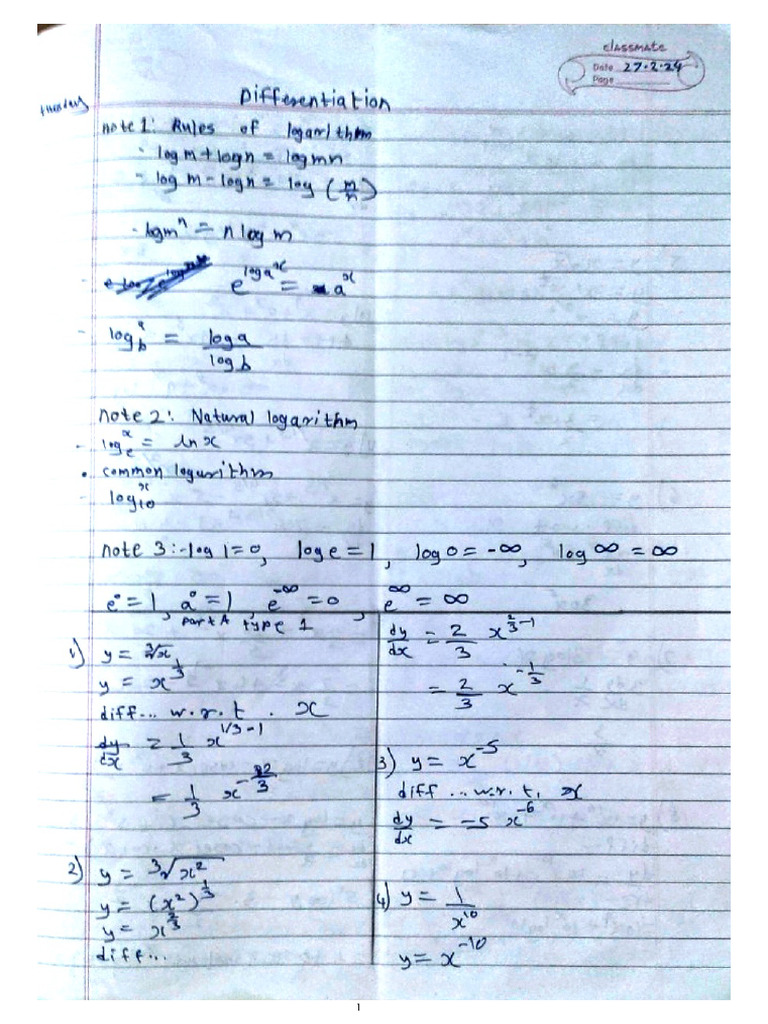 classmate
Date 27.2.24
Page
Tuesday
Differentiation
note 1: Rules of logarithm
- log m + log n = log mn
- log m - log n = log (m/n)
- log m^n = n log m
e^(log a^x) = a^x
- log_b^a = log a / log b
note 2: Natural logarithm
- log_e^x = ln x
• common logarithm
- log_10^x
note 3:- log 1 = 0, log e = 1, log 0 = -∞, log ∞ = ∞
e° = 1, a° = 1, e^-∞ = 0, e^∞ = ∞
part A type 1
1) y = ∛x
y = x^(1/3)
diff... w.r.t. x
dy/dx = 1/3 x^(1/3 - 1)
= 1/3 x^(-2/3)
2) y = ∛(x²)
y = (x²)^(1/3)
y = x^(2/3)
diff...
dy/dx = 2/3 x^(2/3 - 1)
= 2/3 x^(-1/3)
3) y = x^-5
diff... w.r.t. x
dy/dx = -5 x^-6
4) y = 1/x^10
y = x^-10
1